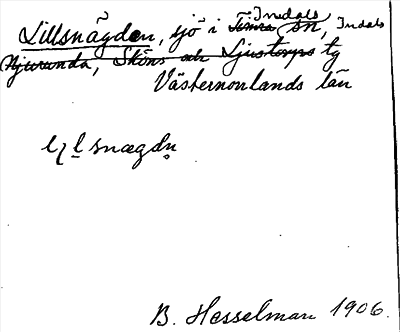 Indals
Lillsnägden, sjö i Timrå sn, Indals
Njurunda, Sköns och Ljustorps tg
Västernorrlands län
snægdn̥
B. Hesselman 1906.